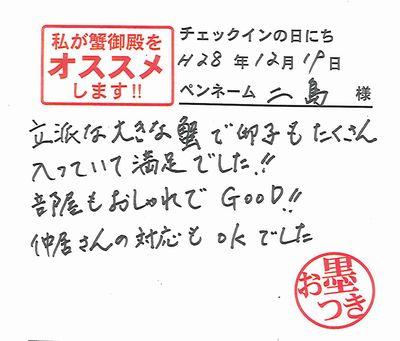 私が蟹御殿を
オススメ
します!!
チェックインの日にち
H28年12月19日
ペンネーム 二島 様
立派な大きな蟹で卵子もたくさん
入っていて満足でした!!
部屋もおしゃれでGooD!!
仲居さんの対応もOKでした
お墨
つき